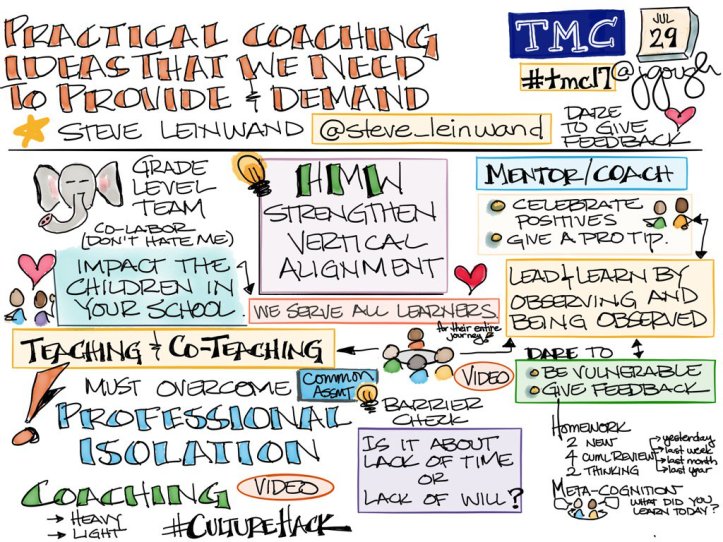 PRACTICAL COACHING
IDEAS THAT WE NEED
TO PROVIDE & DEMAND
TMC
JUL
29
#tmc17
@jgough
STEVE LEINWAND
@steve_leinwand
DARE
TO GIVE
FEEDBACK
GRADE
LEVEL
TEAM
CO-LABOR
(DON'T HATE ME)
IMPACT THE
CHILDREN IN
YOUR SCHOOL.
HMW
STRENGTHEN
VERTICAL
ALIGNMENT
WE SERVE ALL LEARNERS
for their entire
journey
MENTOR/COACH
CELEBRATE
POSITIVES
GIVE A PRO TIP.
LEAD & LEARN BY
OBSERVING AND
BEING OBSERVED
TEACHING & CO-TEACHING
VIDEO
DARE TO
BE VULNERABLE
GIVE FEEDBACK
MUST OVERCOME
PROFESSIONAL
ISOLATION
COMMON
ASSMT
BARRIER
CHECK
IS IT ABOUT
LACK OF TIME
OR
LACK OF WILL?
COACHING
VIDEO
→ HEAVY
→ LIGHT
#CULTUREHACK
HOMEWORK
2 NEW
4 CUML REVIEW
2 THINKING
→ yesterday
→ last week
→ last month
→ last year
META-COGNITION
WHAT DID YOU
LEARN TODAY?